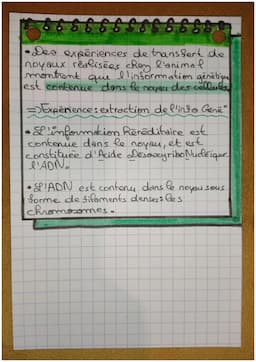 • Des expériences de transfert de
noyaux réalisées chez l'animal
montrent que l'information génétique
est contenue dans le noyau des cellules
⇒ Expérience: extraction de l'info Géné"
• L'information Héréditaire est
contenue dans le noyau, et est
constituée d'Acide DésoxyriboNucléique
l'ADN.
• L'ADN est contenu dans le noyau sous
forme de filaments denses les
chromosomes.